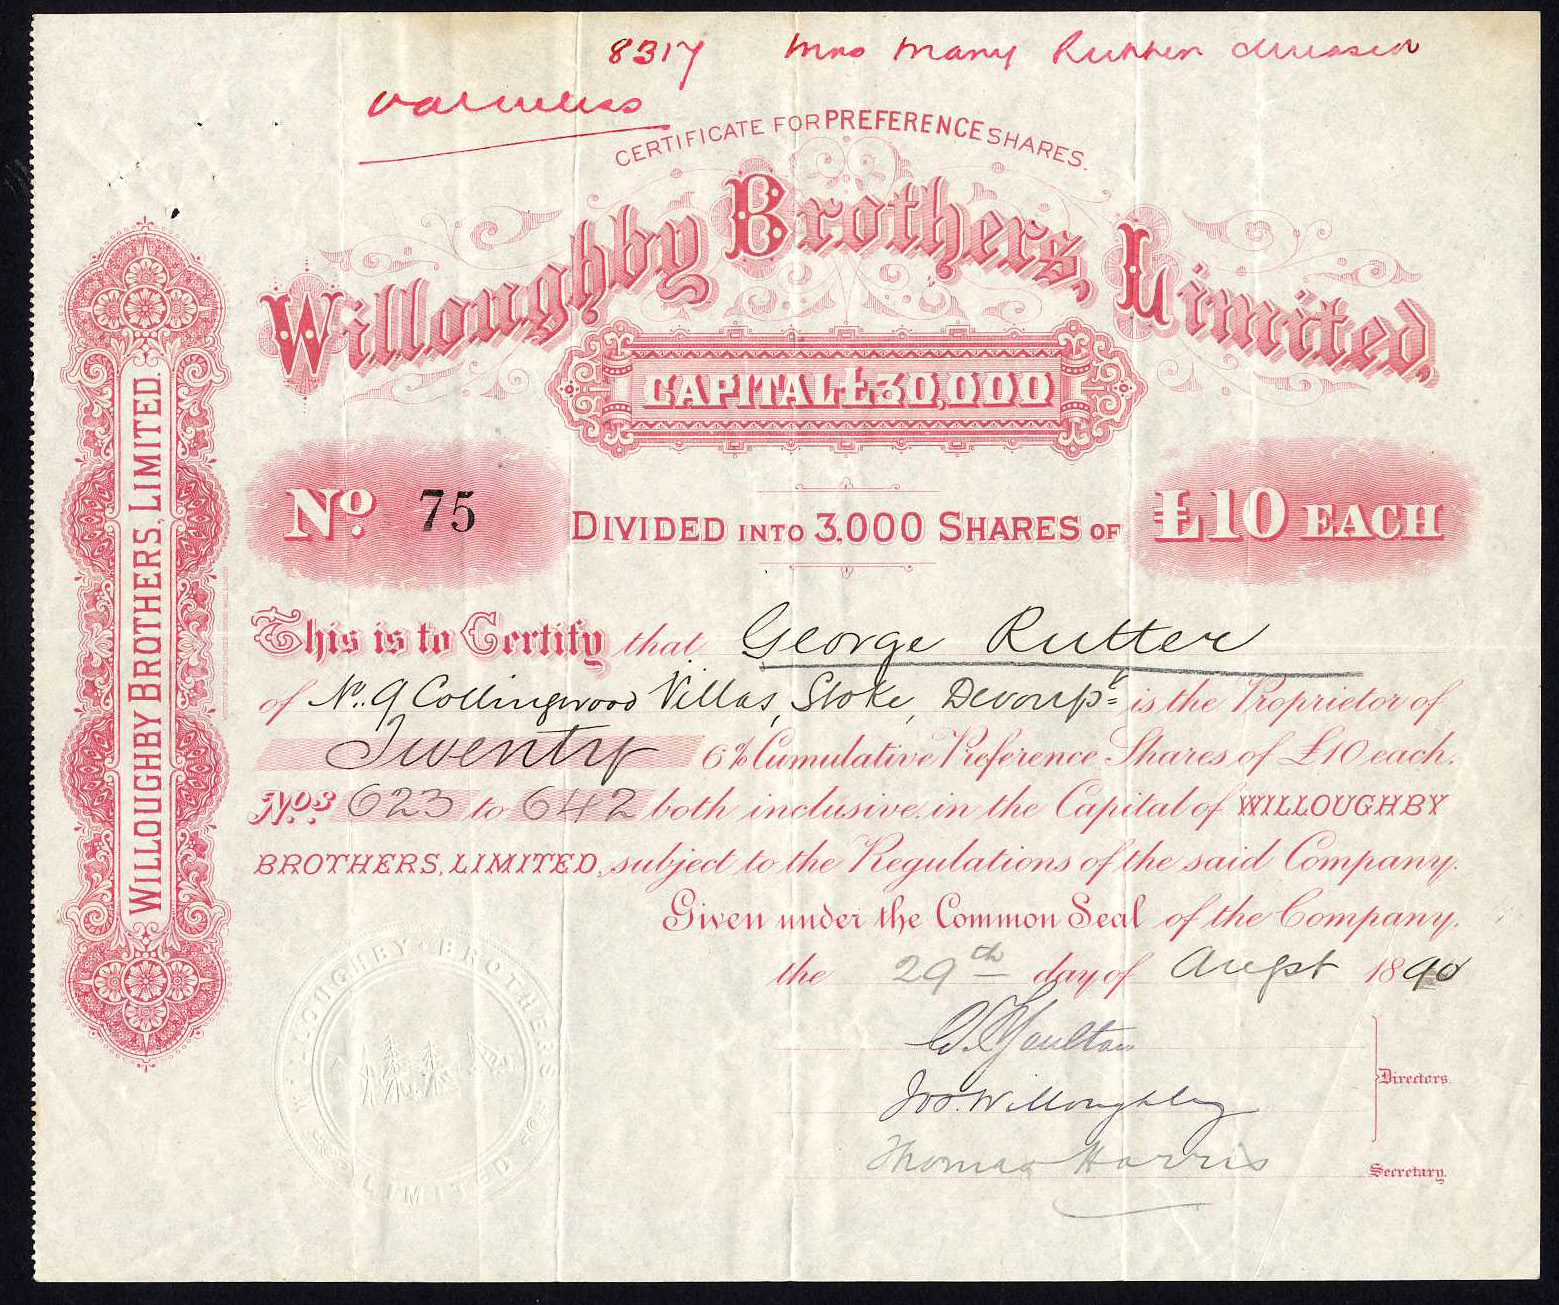 8317 Mrs Mary Rutter deceased
valueless
CERTIFICATE FOR PREFERENCE SHARES.
Willoughby Brothers, Limited.
CAPITAL £30,000
No. 75 DIVIDED INTO 3,000 SHARES OF £10 EACH
This is to Certify that George Rutter
of No. 9 Collingwood Villas, Stoke, Devonpt is the Proprietor of
Twenty 6% Cumulative Preference Shares of £10 each.
Nos. 623 to 642 both inclusive in the Capital of WILLOUGHBY
BROTHERS, LIMITED, subject to the Regulations of the said Company.
Given under the Common Seal of the Company.
the 29th day of Augst 1890
Jno. Willoughby
Directors.
Thomas Harris
Secretary.
WILLOUGHBY BROTHERS, LIMITED.
WILLOUGHBY BROTHERS LIMITED